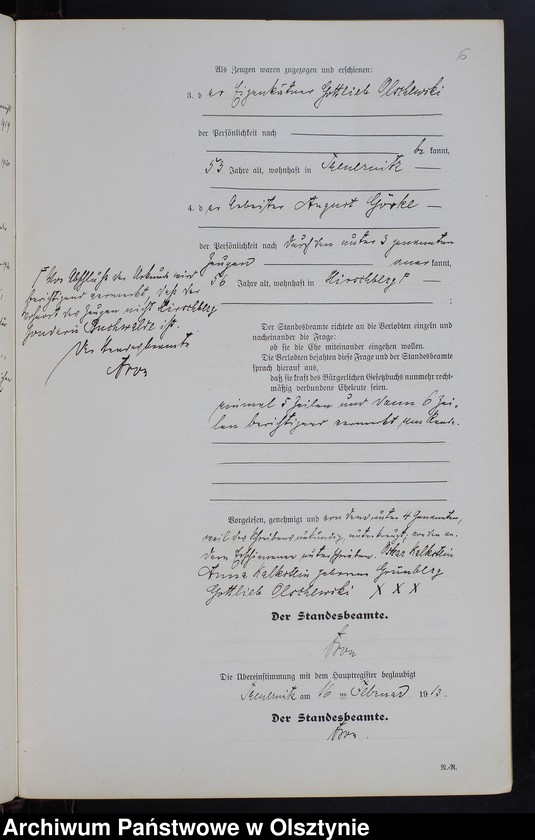 6
Als Zeugen waren zugezogen und erschienen:
3. der Eigenkätner Gottlieb Olschewski
der Persönlichkeit nach
be kannt,
53 Jahre alt, wohnhaft in
4. der Arbeiter August Görke
der Persönlichkeit nach durch den unter 3 genannten
Zeugen anerkannt,
50 Jahre alt, wohnhaft in Hirschberg
;
Vor Abschluß der Urkunde wird
berichtigend vermerkt, daß der
Wohnort des Zeugen nicht Hirschberg
sondern Buchwalde ist.
Der Standesbeamte
Der Standesbeamte richtete an die Verlobten einzeln und
nacheinander die Frage:
ob sie die Ehe miteinander eingehen wollen.
Die Verlobten bejahten diese Frage und der Standesbeamte
sprach hierauf aus,
daß sie kraft des Bürgerlichen Gesetzbuchs nunmehr recht-
mäßig verbundene Eheleute seien.
einmal 5 Zeilen und dann 6 Zei-
len berichtigend vermerkt am Rande.
Vorgelesen, genehmigt und von dem unter 4 Genannten,
weil des Schreibens unkundig, unterkreuzt, von den an-
dern Erschienenen unterschrieben. Oskar Kalkstein
Anna Kalkstein geborene Grünberg
Gottlieb Olschewski X X X
Der Standesbeamte.
Die Übereinstimmung mit dem Hauptregister beglaubigt
am 16 ten Februar 1913.
Der Standesbeamte.
N.-R.
Archiwum Państwowe w Olsztynie